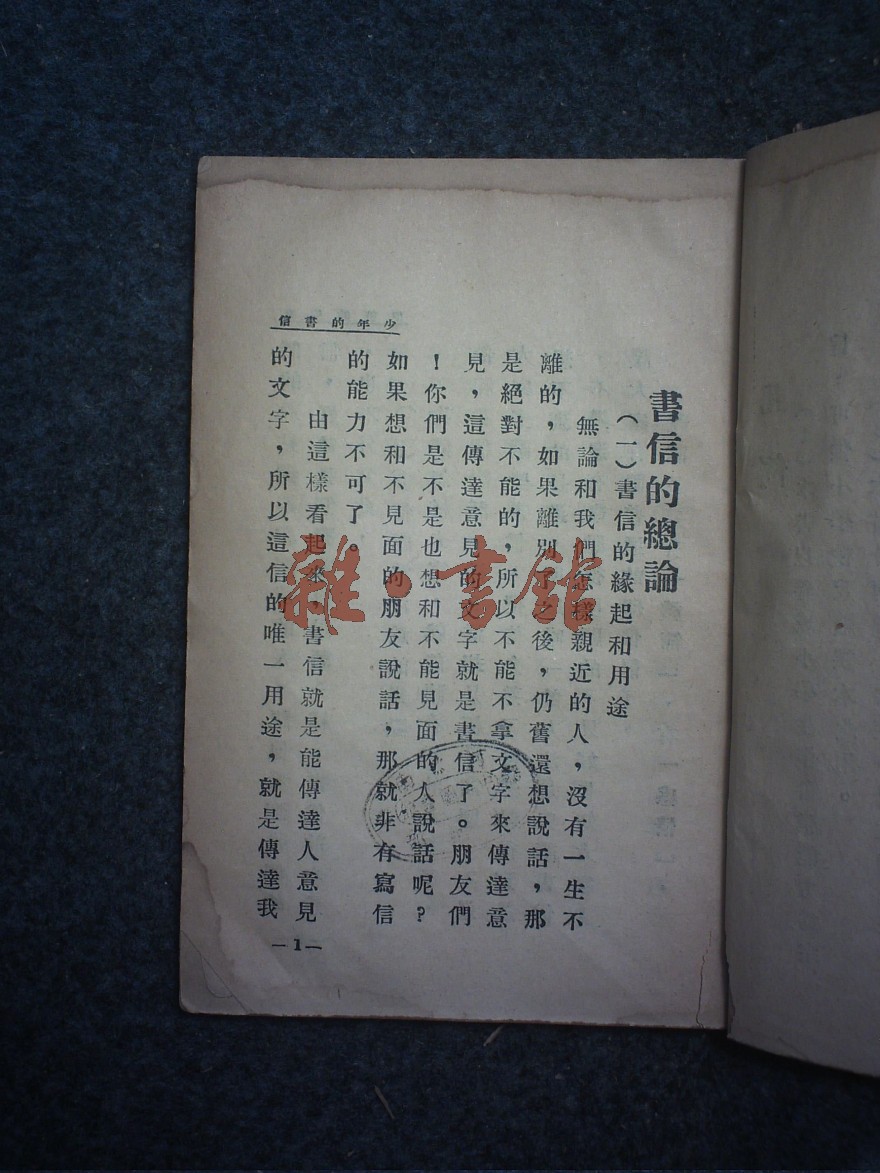 書信的總論
（一）書信的緣起和用途
無論和我們怎樣親近的人，沒有一生不
離的，如果離別了之後，仍舊還想說話，那
是絕對不能的，所以不能不拿文字來傳達意
見，這傳達意見的文字就是書信了。朋友們
！你們是不是也想和不能見面的人說話呢？
如果想和不見面的朋友說話，那就非有寫信
的能力不可了。
由這樣看起來，書信就是能傳達人意見
的文字，所以這信的唯一用途，就是傳達我
少年的書信
—1—
雜·書館